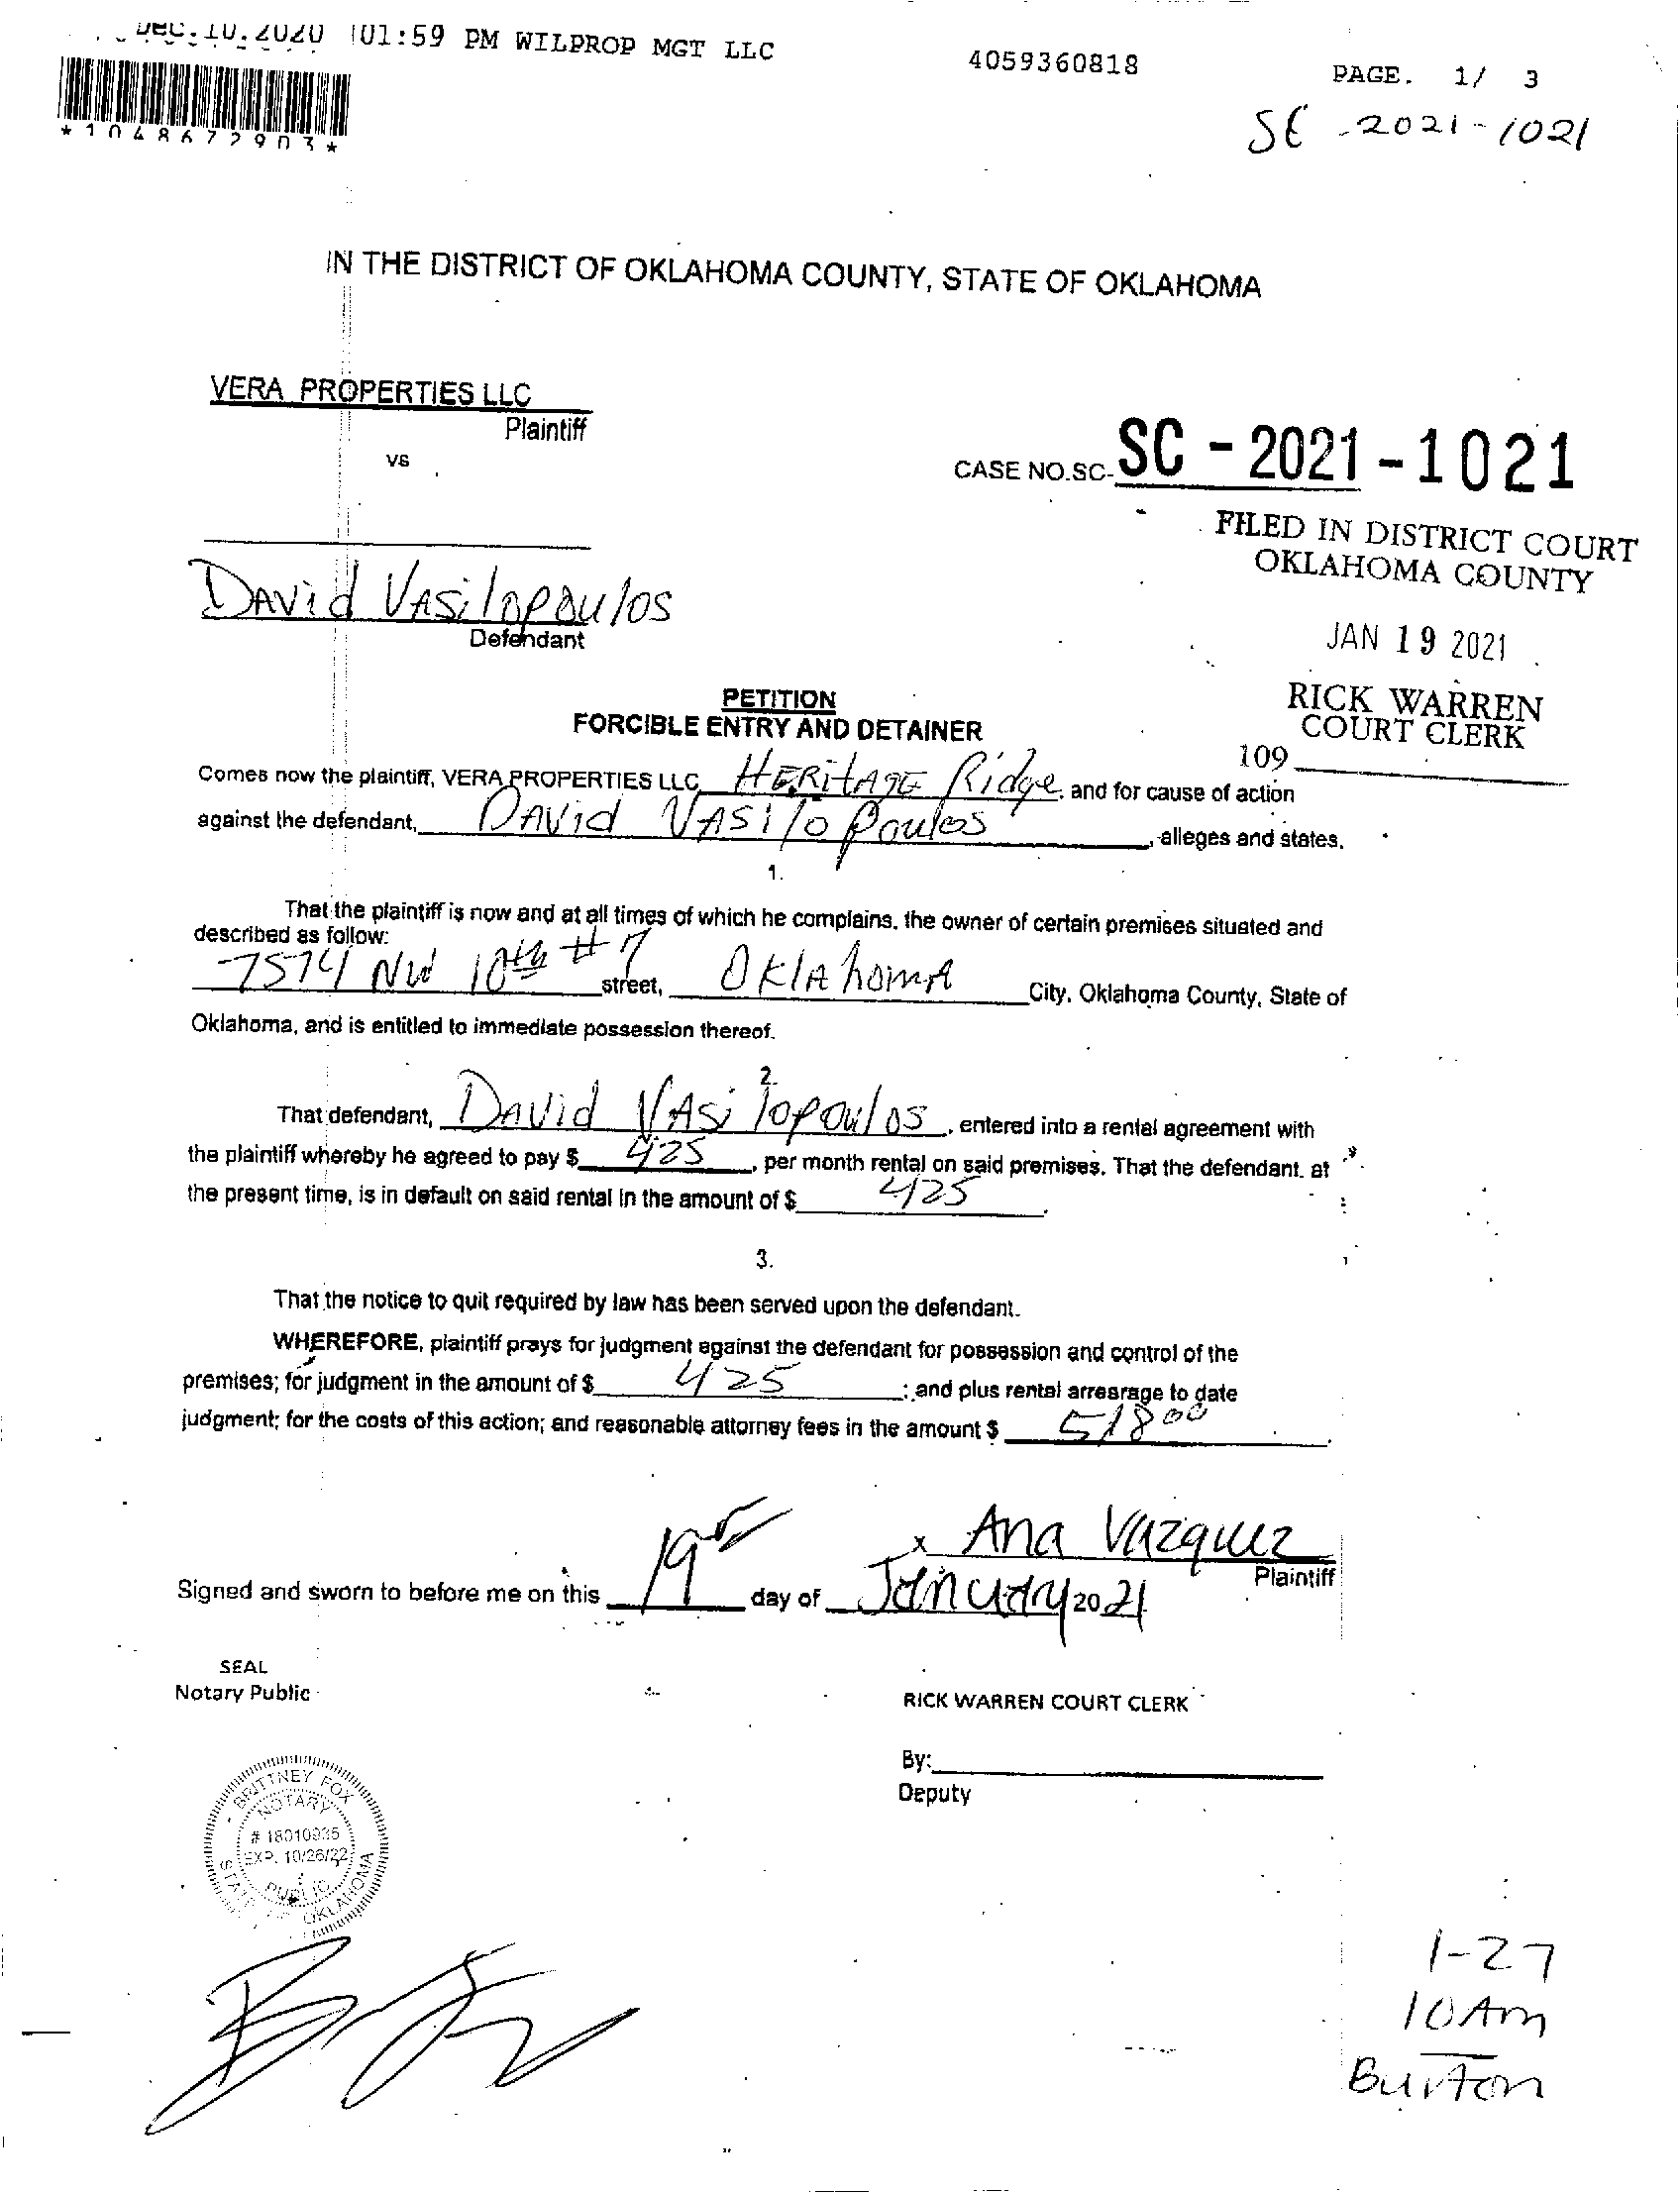 DEC.10.2020 01:59 PM WILPROP MGT LLC 4059360818 PAGE. 1/ 3
*1048672903*
SC -2021-1021
IN THE DISTRICT OF OKLAHOMA COUNTY, STATE OF OKLAHOMA
VERA PROPERTIES LLC
Plaintiff
vs
CASE NO.SC- SC - 2021 - 1021
FILED IN DISTRICT COURT
OKLAHOMA COUNTY
David Vasilopoulos
Defendant
JAN 19 2021
RICK WARREN
COURT CLERK
109
PETITION
FORCIBLE ENTRY AND DETAINER
Comes now the plaintiff, VERA PROPERTIES LLC, HERitAGE Ridge, and for cause of action
against the defendant, David Vasilopoulos, alleges and states.
1.
That the plaintiff is now and at all times of which he complains, the owner of certain premises situated and
described as follow:
7574 NW 10th #7 street, Oklahoma City, Oklahoma County, State of
Oklahoma, and is entitled to immediate possession thereof.
2.
That defendant, David Vasilopoulos, entered into a rental agreement with
the plaintiff whereby he agreed to pay $ 425, per month rental on said premises. That the defendant, at
the present time, is in default on said rental in the amount of $ 425.
3.
That the notice to quit required by law has been served upon the defendant.
WHEREFORE, plaintiff prays for judgment against the defendant for possession and control of the
premises; for judgment in the amount of $ 425; and plus rental arrearage to date
judgment; for the costs of this action; and reasonable attorney fees in the amount $ 518 00.
x Ana Vazquez
Plaintiff
Signed and sworn to before me on this 19 day of January 2021
SEAL
Notary Public
RICK WARREN COURT CLERK
By:
Deputy
BRITTNEY FOX
NOTARY
# 18010935
EXP. 10/26/22
PUBLIC
STATE OF OKLAHOMA
1-27
10 Am
Burton